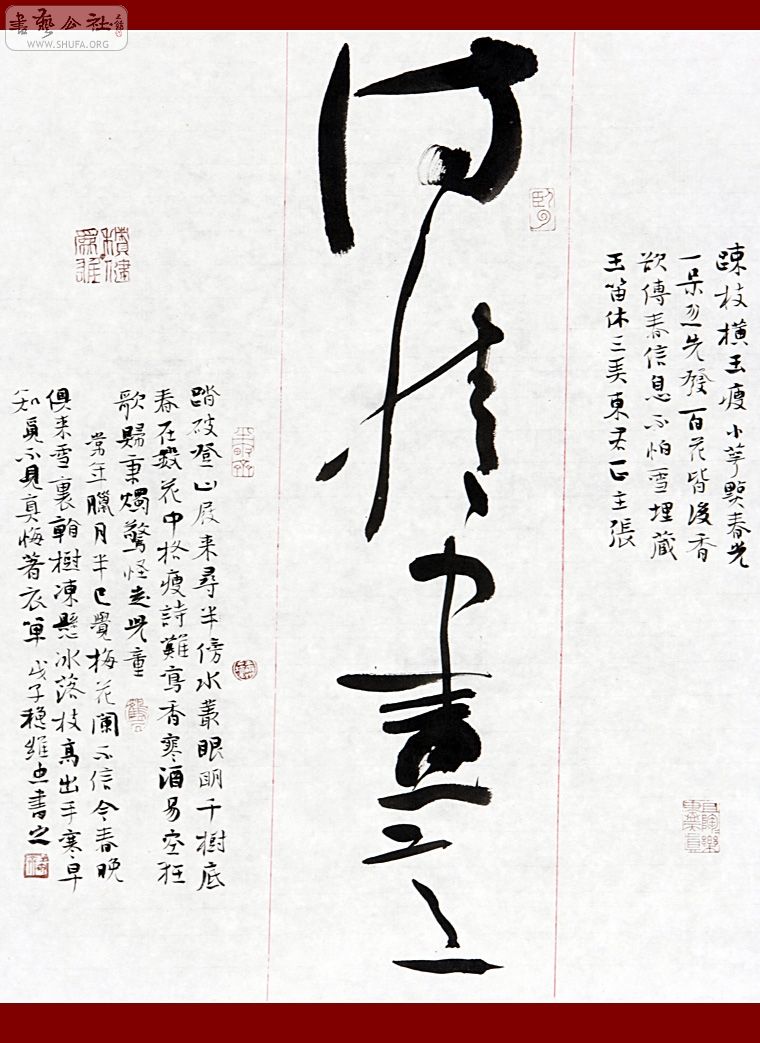 書藝公社
WWW.SHUFA.ORG
疎枝橫玉瘦小萼點春光
一朵忽先發百花皆後香
欲傳春信息不怕雪埋藏
玉笛休三弄東君正主張
情畫
踏破登山屐來尋半傍水叢眼明千樹底
春在數花中格瘦詩難寫香寒酒易空狂
歌歸秉燭驚怪走兒童
常年臘月半已覺梅花闌不信今春晚
俱來雪裏樹凍懸冰落枝高出手寒早
知覓不見真悔著衣單戊子書之